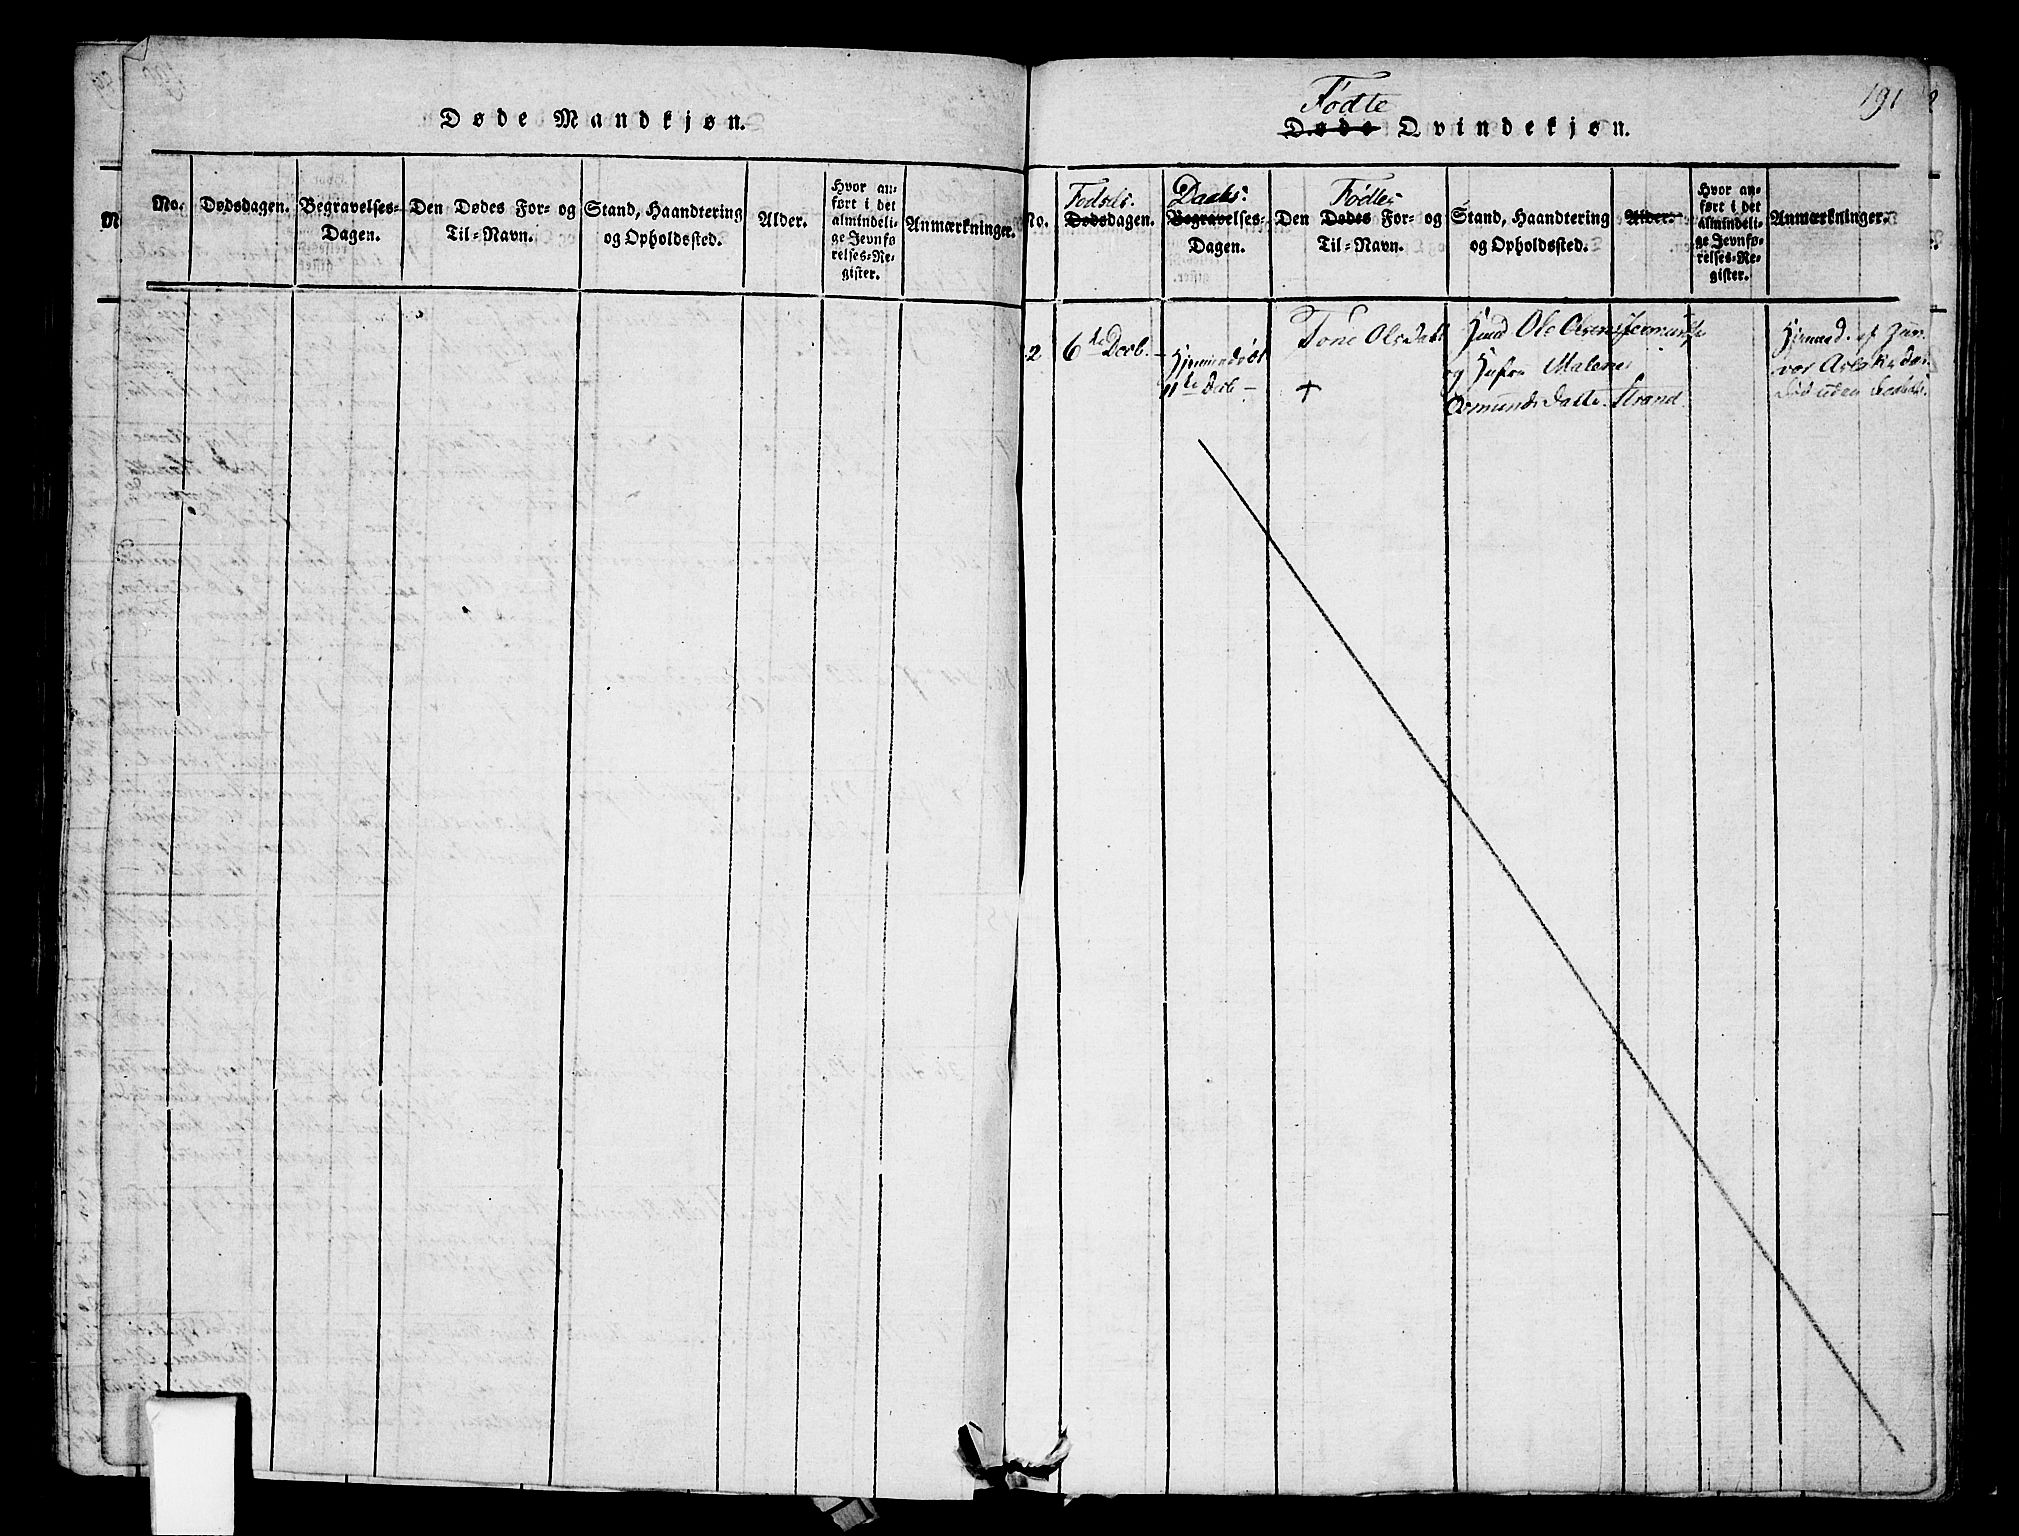 Døde Mandkjøn.
No.
Dødsdagen.
Begravelses-
Dagen.
Den Dødes For- og
Til-Navn.
Stand, Haandtering
og Opholdssted.
Alder.
Hvor an-
ført i det
almindeli-
ge Jevnfø-
relses-Re-
gister.
Anmærkninger.
191
Fødte
Døde Qvindekjøn.
No.
Fødsels
Dødsdagen.
Daabs:
Begravelses-
Dagen.
Fødtes
Den Dødes For- og
Til-Navn.
Stand, Haandtering
og Opholdssted.
Alder.
Hvor an-
ført i det
almindeli-
ge Jevnfø-
relses-Re-
gister.
Anmærkninger.
2
6te Decb.
Hjemmedøbt
11te Decb
Tone Olsdatt
+
Huusd Ole Olsen
og Hustru Malene
Osmundsdatter Strand.
Hjemmed. af